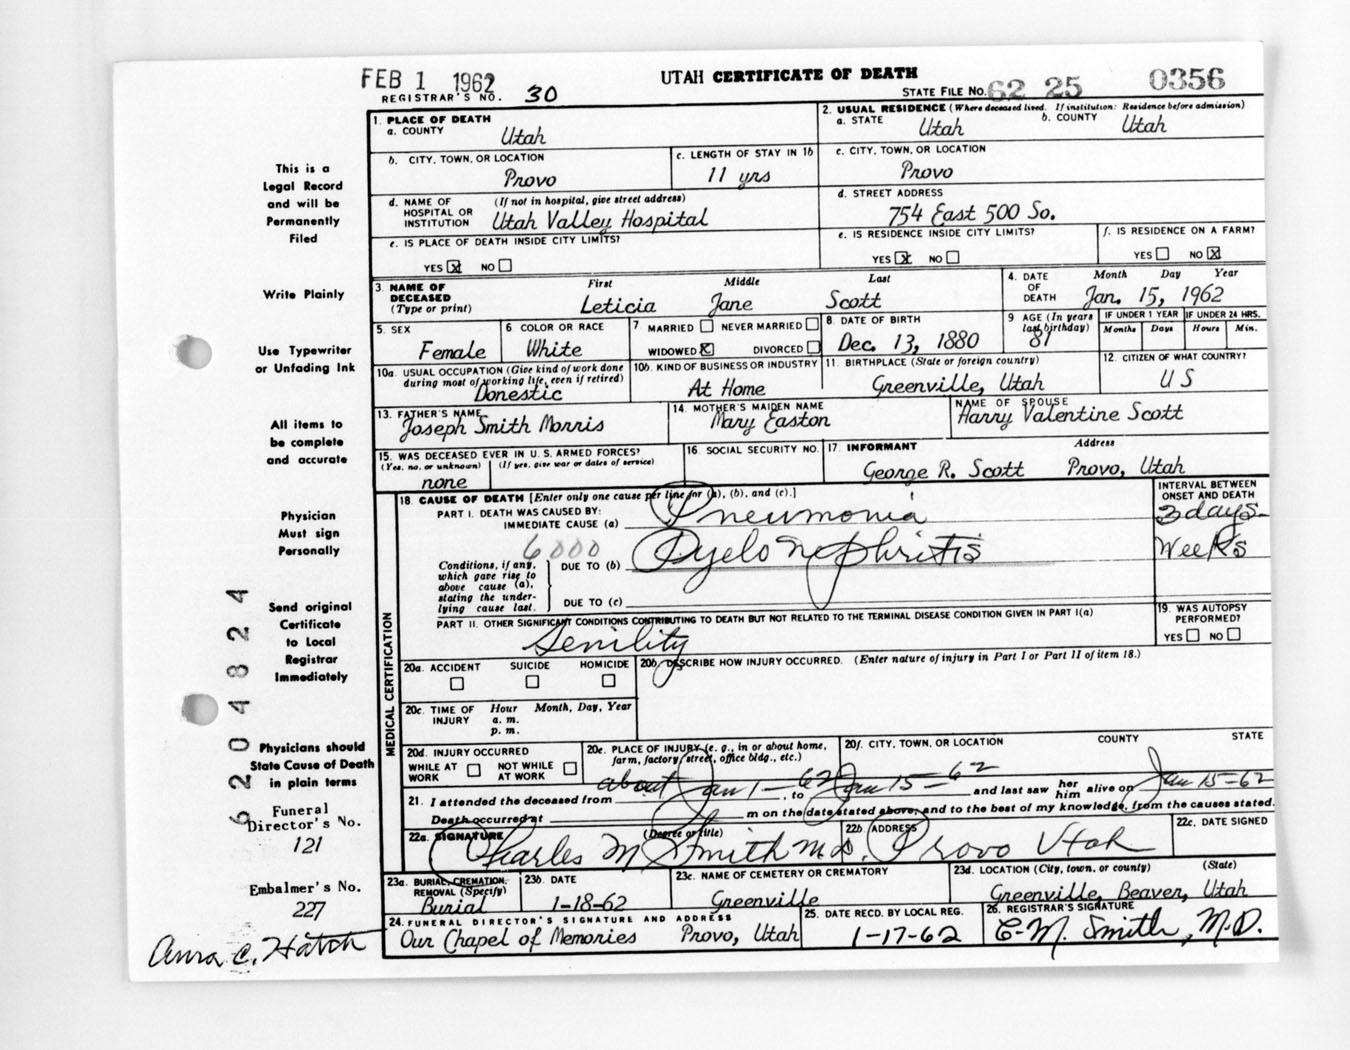 FEB 1 1962
UTAH CERTIFICATE OF DEATH
REGISTRAR'S NO. 30
STATE FILE NO. 62 25 0356
This is a
Legal Record
and will be
Permanently
Filed
Write Plainly
Use Typewriter
or Unfading Ink
All items to
be complete
and accurate
Physician
Must sign
Personally
Send original
Certificate
to Local
Registrar
Immediately
Physicians should
State Cause of Death
in plain terms
Funeral
Director's No.
121
Embalmer's No.
227
C. Hatch
6204824
1. PLACE OF DEATH
a. COUNTY Utah
2. USUAL RESIDENCE (Where deceased lived. If institution: Residence before admission)
a. STATE Utah b. COUNTY Utah
b. CITY, TOWN, OR LOCATION Provo
c. LENGTH OF STAY IN 1b 11 yrs
c. CITY, TOWN, OR LOCATION Provo
d. NAME OF HOSPITAL OR INSTITUTION (If not in hospital, give street address) Utah Valley Hospital
d. STREET ADDRESS 754 East 500 So.
e. IS PLACE OF DEATH INSIDE CITY LIMITS? YES X NO
e. IS RESIDENCE INSIDE CITY LIMITS? YES X NO
f. IS RESIDENCE ON A FARM? YES NO X
3. NAME OF DECEASED (Type or print) First Leticia Middle Jane Last Scott
4. DATE OF DEATH Month Day Year Jan. 15, 1962
5. SEX Female
6 COLOR OR RACE White
7 MARRIED NEVER MARRIED WIDOWED X DIVORCED
8 DATE OF BIRTH Dec. 13, 1880
9 AGE (In years last birthday) 81
IF UNDER 1 YEAR Months Days
IF UNDER 24 HRS. Hours Min.
10a. USUAL OCCUPATION (Give kind of work done during most of working life, even if retired) Donestic
10b. KIND OF BUSINESS OR INDUSTRY At Home
11. BIRTHPLACE (State or foreign country) Greenville, Utah
12. CITIZEN OF WHAT COUNTRY? U S
13. FATHER'S NAME Joseph Smith Morris
14. MOTHER'S MAIDEN NAME Mary Easton
NAME OF SPOUSE Harry Valentine Scott
15. WAS DECEASED EVER IN U.S. ARMED FORCES? (Yes, no, or unknown) (If yes, give war or dates of service) none
16. SOCIAL SECURITY NO.
17. INFORMANT Address George R. Scott Provo, Utah
MEDICAL CERTIFICATION
18. CAUSE OF DEATH [Enter only one cause per line for (a), (b), and (c).]
INTERVAL BETWEEN ONSET AND DEATH
PART I. DEATH WAS CAUSED BY:
IMMEDIATE CAUSE (a) Pneumonia 3 days
6000
Conditions, if any, which gave rise to above cause (a), stating the underlying cause last.
DUE TO (b) Pyelo nephritis Weeks
DUE TO (c)
PART II. OTHER SIGNIFICANT CONDITIONS CONTRIBUTING TO DEATH BUT NOT RELATED TO THE TERMINAL DISEASE CONDITION GIVEN IN PART I(a)
Senility
19. WAS AUTOPSY PERFORMED? YES NO
20a. ACCIDENT SUICIDE HOMICIDE
20b. DESCRIBE HOW INJURY OCCURRED. (Enter nature of injury in Part I or Part II of item 18.)
20c. TIME OF INJURY Hour a. m. p. m. Month, Day, Year
20d. INJURY OCCURRED WHILE AT WORK NOT WHILE AT WORK
20e. PLACE OF INJURY (e. g., in or about home, farm, factory, street, office bldg., etc.)
20f. CITY, TOWN, OR LOCATION COUNTY STATE
21. I attended the deceased from about Jan 1-62, to Jan 15-62 and last saw her him alive on Jan 15-62
Death occurred at m on the date stated above; and to the best of my knowledge, from the causes stated.
22a. SIGNATURE (Degree or title) Charles M Smith M.D.
22b. ADDRESS Provo Utah
22c. DATE SIGNED
23a. BURIAL, CREMATION, REMOVAL (Specify) Burial
23b. DATE 1-18-62
23c. NAME OF CEMETERY OR CREMATORY Greenville
23d. LOCATION (City, town, or county) (State) Greenville, Beaver, Utah
24. FUNERAL DIRECTOR'S SIGNATURE AND ADDRESS Our Chapel of Memories Provo, Utah
25. DATE RECD. BY LOCAL REG. 1-17-62
26. REGISTRAR'S SIGNATURE C. M. Smith, M.D.